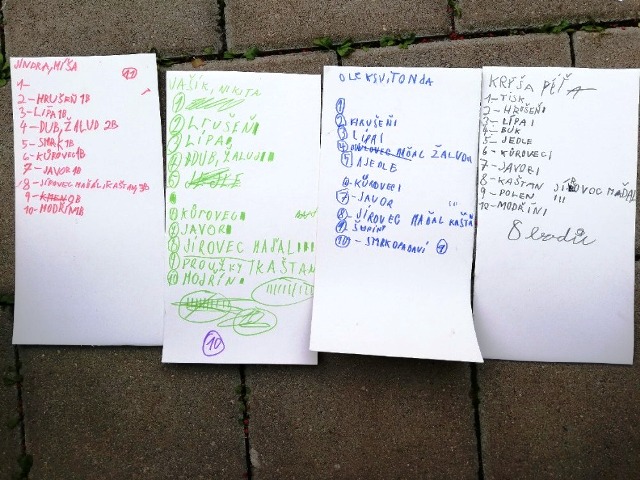 JINDRA, MÍŠA
11
1-
2- HRUŠEŇ 1B
3- LÍPA 1B
4- DUB, ŽALUD 2B
5- SMRK 1B
6- KŮROVEC 1B
7- JAVOR 1B
8- JÍROVEC MAĎAL, KAŠTAN 3B
9- 0B
10- MODŘÍN 1B
VAŠÍK, NIKITA
1
2 LRUŠEŇ
3 LÍPA
4 DUB, ŽALUJ
5 JEDLE
6 KŮROVEC
7 JAVOR
8 JÍROVEC MAĎAL
9 PROUŽKY KAŠTAN
10 MOJŘÍN
12
10
OLEKSVITONDA
1
2 HRUŠEŇ I
3 LÍPA I
4 MAĎAL ŽALUD
5 JEDLE
6 KŮROVEC I
7 JAVOR
8 JÍROVEC MAĎAL KAŠTAN
9
10 - SMRK OPADAVÍ 9
KRYŠA PÉŤA
1- TISK
2- HRUŠEŇ I
3- LÍPA I
4- BUK
5- JEDLE
6- KŮROVEC I
7- JAVOR I
8- KAŠTAN JÍROVOC MAĎAL
9- POLEN III
10- MODŘÍN I
8 bodů